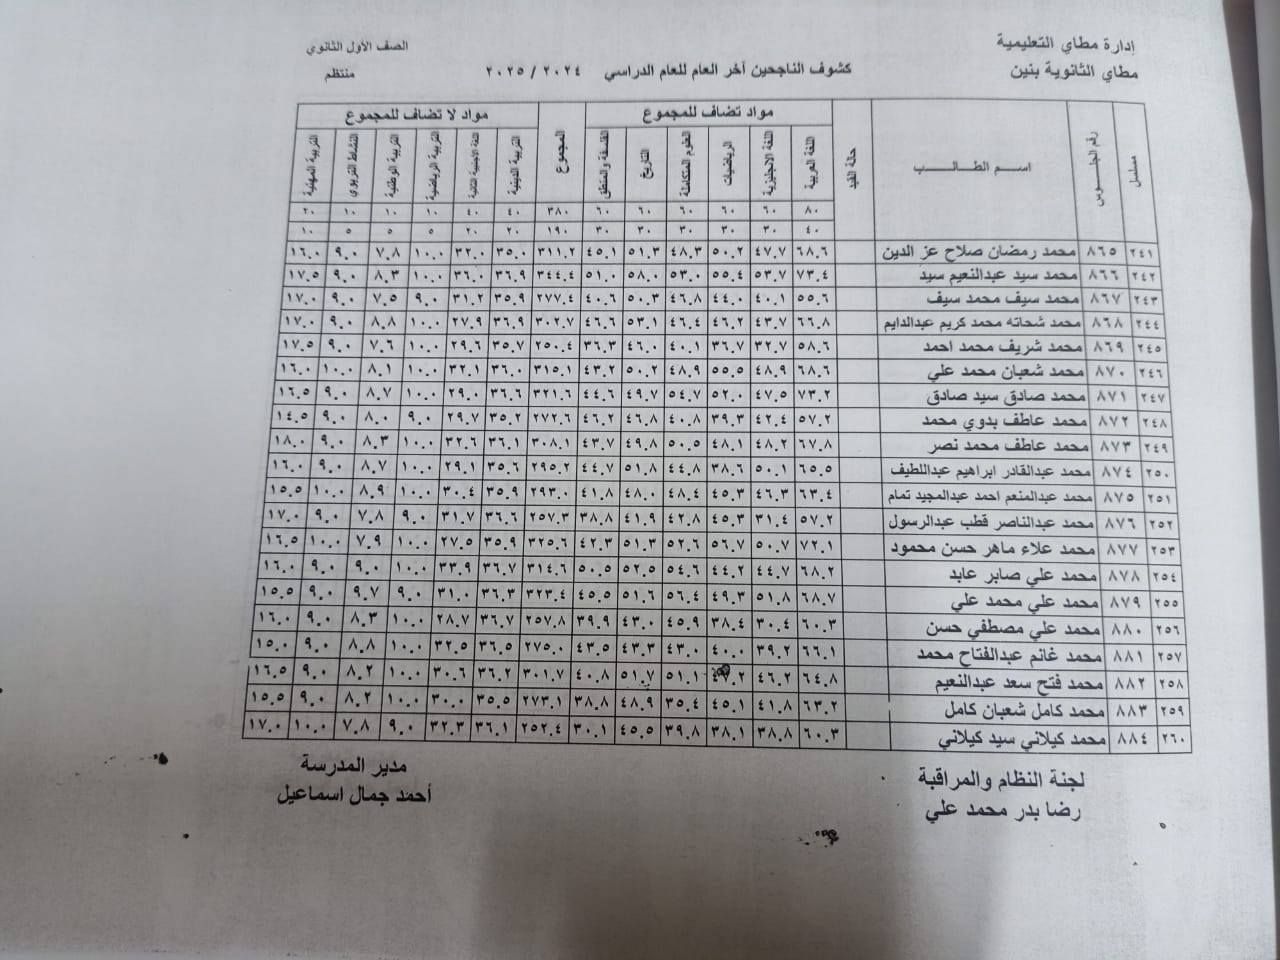 إدارة مطاي التعليمية
الصف الأول الثانوي
مطاي الثانوية بنين
كشوف الناجحين آخر العام للعام الدراسي ٢٠٢٤ / ٢٠٢٥
منتظم
مسلسل رقم الجلوس اسم الطالب حالة القيد مواد تضاف للمجموع المجموع مواد لا تضاف للمجموع
اللغة العربية اللغة الانجليزية الرياضيات العلوم المتكاملة التاريخ الفلسفة والمنطق التربية الدينية اللغة الأجنبية الثانية التربية الرياضية التربية الوطنية النشاط التربوي التربية المهنية
٨٠ ٦٠ ٦٠ ٦٠ ٦٠ ٦٠ ٣٨٠ ٤٠ ٤٠ ١٠ ١٠ ١٠ ٢٠
٤٠ ٣٠ ٣٠ ٣٠ ٣٠ ٣٠ ١٩٠ ٢٠ ٢٠ ٥ ٥ ٥ ١٠
٢٤١ ٨٦٥ محمد رمضان صلاح عز الدين ٦٨.٦ ٤٧.٧ ٥٠.٢ ٤٨.٣ ٥١.٣ ٤٥.١ ٣١١.٢ ٣٥.٠ ٣٢.٠ ١٠.٠ ٧.٨ ٩.٠ ١٦.٠
٢٤٢ ٨٦٦ محمد سيد عبدالنعيم سيد ٧٣.٤ ٥٣.٧ ٥٥.٤ ٥٣.٠ ٥٨.٠ ٥١.٠ ٣٤٤.٤ ٣٦.٩ ٣٦.٠ ١٠.٠ ٨.٣ ٩.٠ ١٧.٥
٢٤٣ ٨٦٧ محمد سيف محمد سيف ٥٥.٦ ٤٠.١ ٤٤.٠ ٤٦.٨ ٥٠.٣ ٤٠.٦ ٢٧٧.٤ ٣٥.٩ ٣١.٢ ٩.٠ ٧.٥ ٩.٠ ١٧.٠
٢٤٤ ٨٦٨ محمد شحاته محمد كريم عبدالدايم ٦٦.٨ ٤٣.٧ ٤٦.٢ ٤٦.٤ ٥٣.١ ٤٦.٦ ٣٠٢.٧ ٣٦.٩ ٢٧.٩ ١٠.٠ ٨.٨ ٩.٠ ١٧.٠
٢٤٥ ٨٦٩ محمد شريف محمد احمد ٥٨.٦ ٣٢.٧ ٣٦.٧ ٤٠.١ ٤٦.٠ ٣٦.٣ ٢٥٠.٤ ٣٥.٧ ٢٩.٦ ١٠.٠ ٧.٦ ٩.٠ ١٧.٥
٢٤٦ ٨٧٠ محمد شعبان محمد علي ٦٨.٦ ٤٨.٩ ٥٥.٥ ٤٨.٩ ٥٠.٢ ٤٣.٢ ٣١٥.١ ٣٦.٠ ٣٢.١ ١٠.٠ ٨.١ ١٠.٠ ١٦.٠
٢٤٧ ٨٧١ محمد صادق سيد صادق ٧٣.٢ ٤٧.٥ ٥٢.٠ ٥٤.٧ ٤٩.٧ ٤٤.٦ ٣٢١.٦ ٣٦.٦ ٢٩.٠ ١٠.٠ ٨.٧ ٩.٠ ١٦.٥
٢٤٨ ٨٧٢ محمد عاطف بدوي محمد ٥٧.٢ ٤٢.٤ ٣٩.٣ ٤٠.٨ ٤٦.٨ ٤٦.٢ ٢٧٢.٦ ٣٥.٢ ٢٩.٧ ٩.٠ ٨.٠ ٩.٠ ١٤.٥
٢٤٩ ٨٧٣ محمد عاطف محمد نصر ٦٧.٨ ٤٨.٢ ٤٨.١ ٥٠.٥ ٤٩.٨ ٤٣.٧ ٣٠٨.١ ٣٦.١ ٣٢.٦ ١٠.٠ ٨.٣ ٩.٠ ١٨.٠
٢٥٠ ٨٧٤ محمد عبدالقادر ابراهيم عبداللطيف ٦٥.٥ ٥٠.١ ٣٨.٦ ٤٤.٨ ٥١.٨ ٤٤.٧ ٢٩٥.٢ ٣٥.٦ ٢٩.١ ١٠.٠ ٨.٧ ٩.٠ ١٦.٠
٢٥١ ٨٧٥ محمد عبدالمنعم احمد عبدالمجيد تمام ٦٣.٤ ٤٦.٣ ٤٥.٣ ٤٨.٤ ٤٨.٠ ٤١.٨ ٢٩٣.٠ ٣٥.٩ ٣٠.٤ ١٠.٠ ٨.٩ ١٠.٠ ١٥.٥
٢٥٢ ٨٧٦ محمد عبدالناصر قطب عبدالرسول ٥٧.٢ ٣١.٤ ٤٥.٣ ٤٢.٨ ٤١.٩ ٣٨.٨ ٢٥٧.٣ ٣٦.٦ ٣١.٧ ٩.٠ ٧.٨ ٩.٠ ١٧.٠
٢٥٣ ٨٧٧ محمد علاء ماهر حسن محمود ٧٢.١ ٥٠.٧ ٥٦.٧ ٥٢.٦ ٥١.٣ ٤٢.٣ ٣٢٥.٦ ٣٥.٩ ٢٧.٥ ١٠.٠ ٧.٩ ١٠.٠ ١٦.٥
٢٥٤ ٨٧٨ محمد علي صابر عابد ٦٨.٢ ٤٤.٧ ٤٤.٢ ٥٤.٦ ٥٢.٥ ٥٠.٥ ٣١٤.٦ ٣٦.٧ ٣٣.٩ ١٠.٠ ٩.٠ ٩.٠ ١٦.٠
٢٥٥ ٨٧٩ محمد علي محمد علي ٦٨.٧ ٥١.٨ ٤٩.٣ ٥٦.٤ ٥١.٦ ٤٥.٥ ٣٢٣.٤ ٣٦.٣ ٣١.٠ ٩.٠ ٩.٧ ٩.٠ ١٥.٥
٢٥٦ ٨٨٠ محمد علي مصطفي حسن ٦٠.٣ ٣٠.٤ ٣٨.٤ ٤٥.٩ ٤٣.٠ ٣٩.٩ ٢٥٧.٨ ٣٦.٧ ٢٨.٧ ١٠.٠ ٨.٣ ٩.٠ ١٦.٠
٢٥٧ ٨٨١ محمد غانم عبدالفتاح محمد ٦٦.١ ٣٩.٢ ٤٠.٠ ٤٣.٠ ٤٣.٣ ٤٣.٥ ٢٧٥.٠ ٣٦.٥ ٣٢.٥ ١٠.٠ ٨.٨ ٩.٠ ١٥.٠
٢٥٨ ٨٨٢ محمد فتح سعد عبدالنعيم ٦٤.٨ ٤٦.٢ ٤٧.٢ ٥١.١ ٥١.٧ ٤٠.٨ ٣٠١.٧ ٣٦.٢ ٣٠.٦ ١٠.٠ ٨.٢ ٩.٠ ١٦.٥
٢٥٩ ٨٨٣ محمد كامل شعبان كامل ٦٣.٢ ٤١.٨ ٤٥.١ ٣٥.٤ ٤٨.٩ ٣٨.٨ ٢٧٣.١ ٣٥.٥ ٣٠.٠ ١٠.٠ ٨.٢ ٩.٠ ١٥.٥
٢٦٠ ٨٨٤ محمد كيلاني سيد كيلاني ٦٠.٣ ٣٨.٨ ٣٨.١ ٣٩.٨ ٤٥.٥ ٣٠.١ ٢٥٢.٤ ٣٦.١ ٣٢.٣ ٩.٠ ٧.٨ ١٠.٠ ١٧.٠
لجنة النظام والمراقبة
مدير المدرسة
رضا بدر محمد علي
أحمد جمال اسماعيل